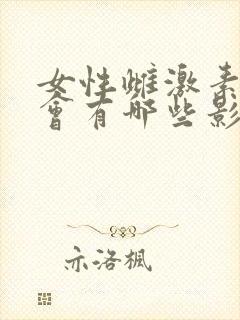 女性雌激素
会有哪些影
亦洛枫